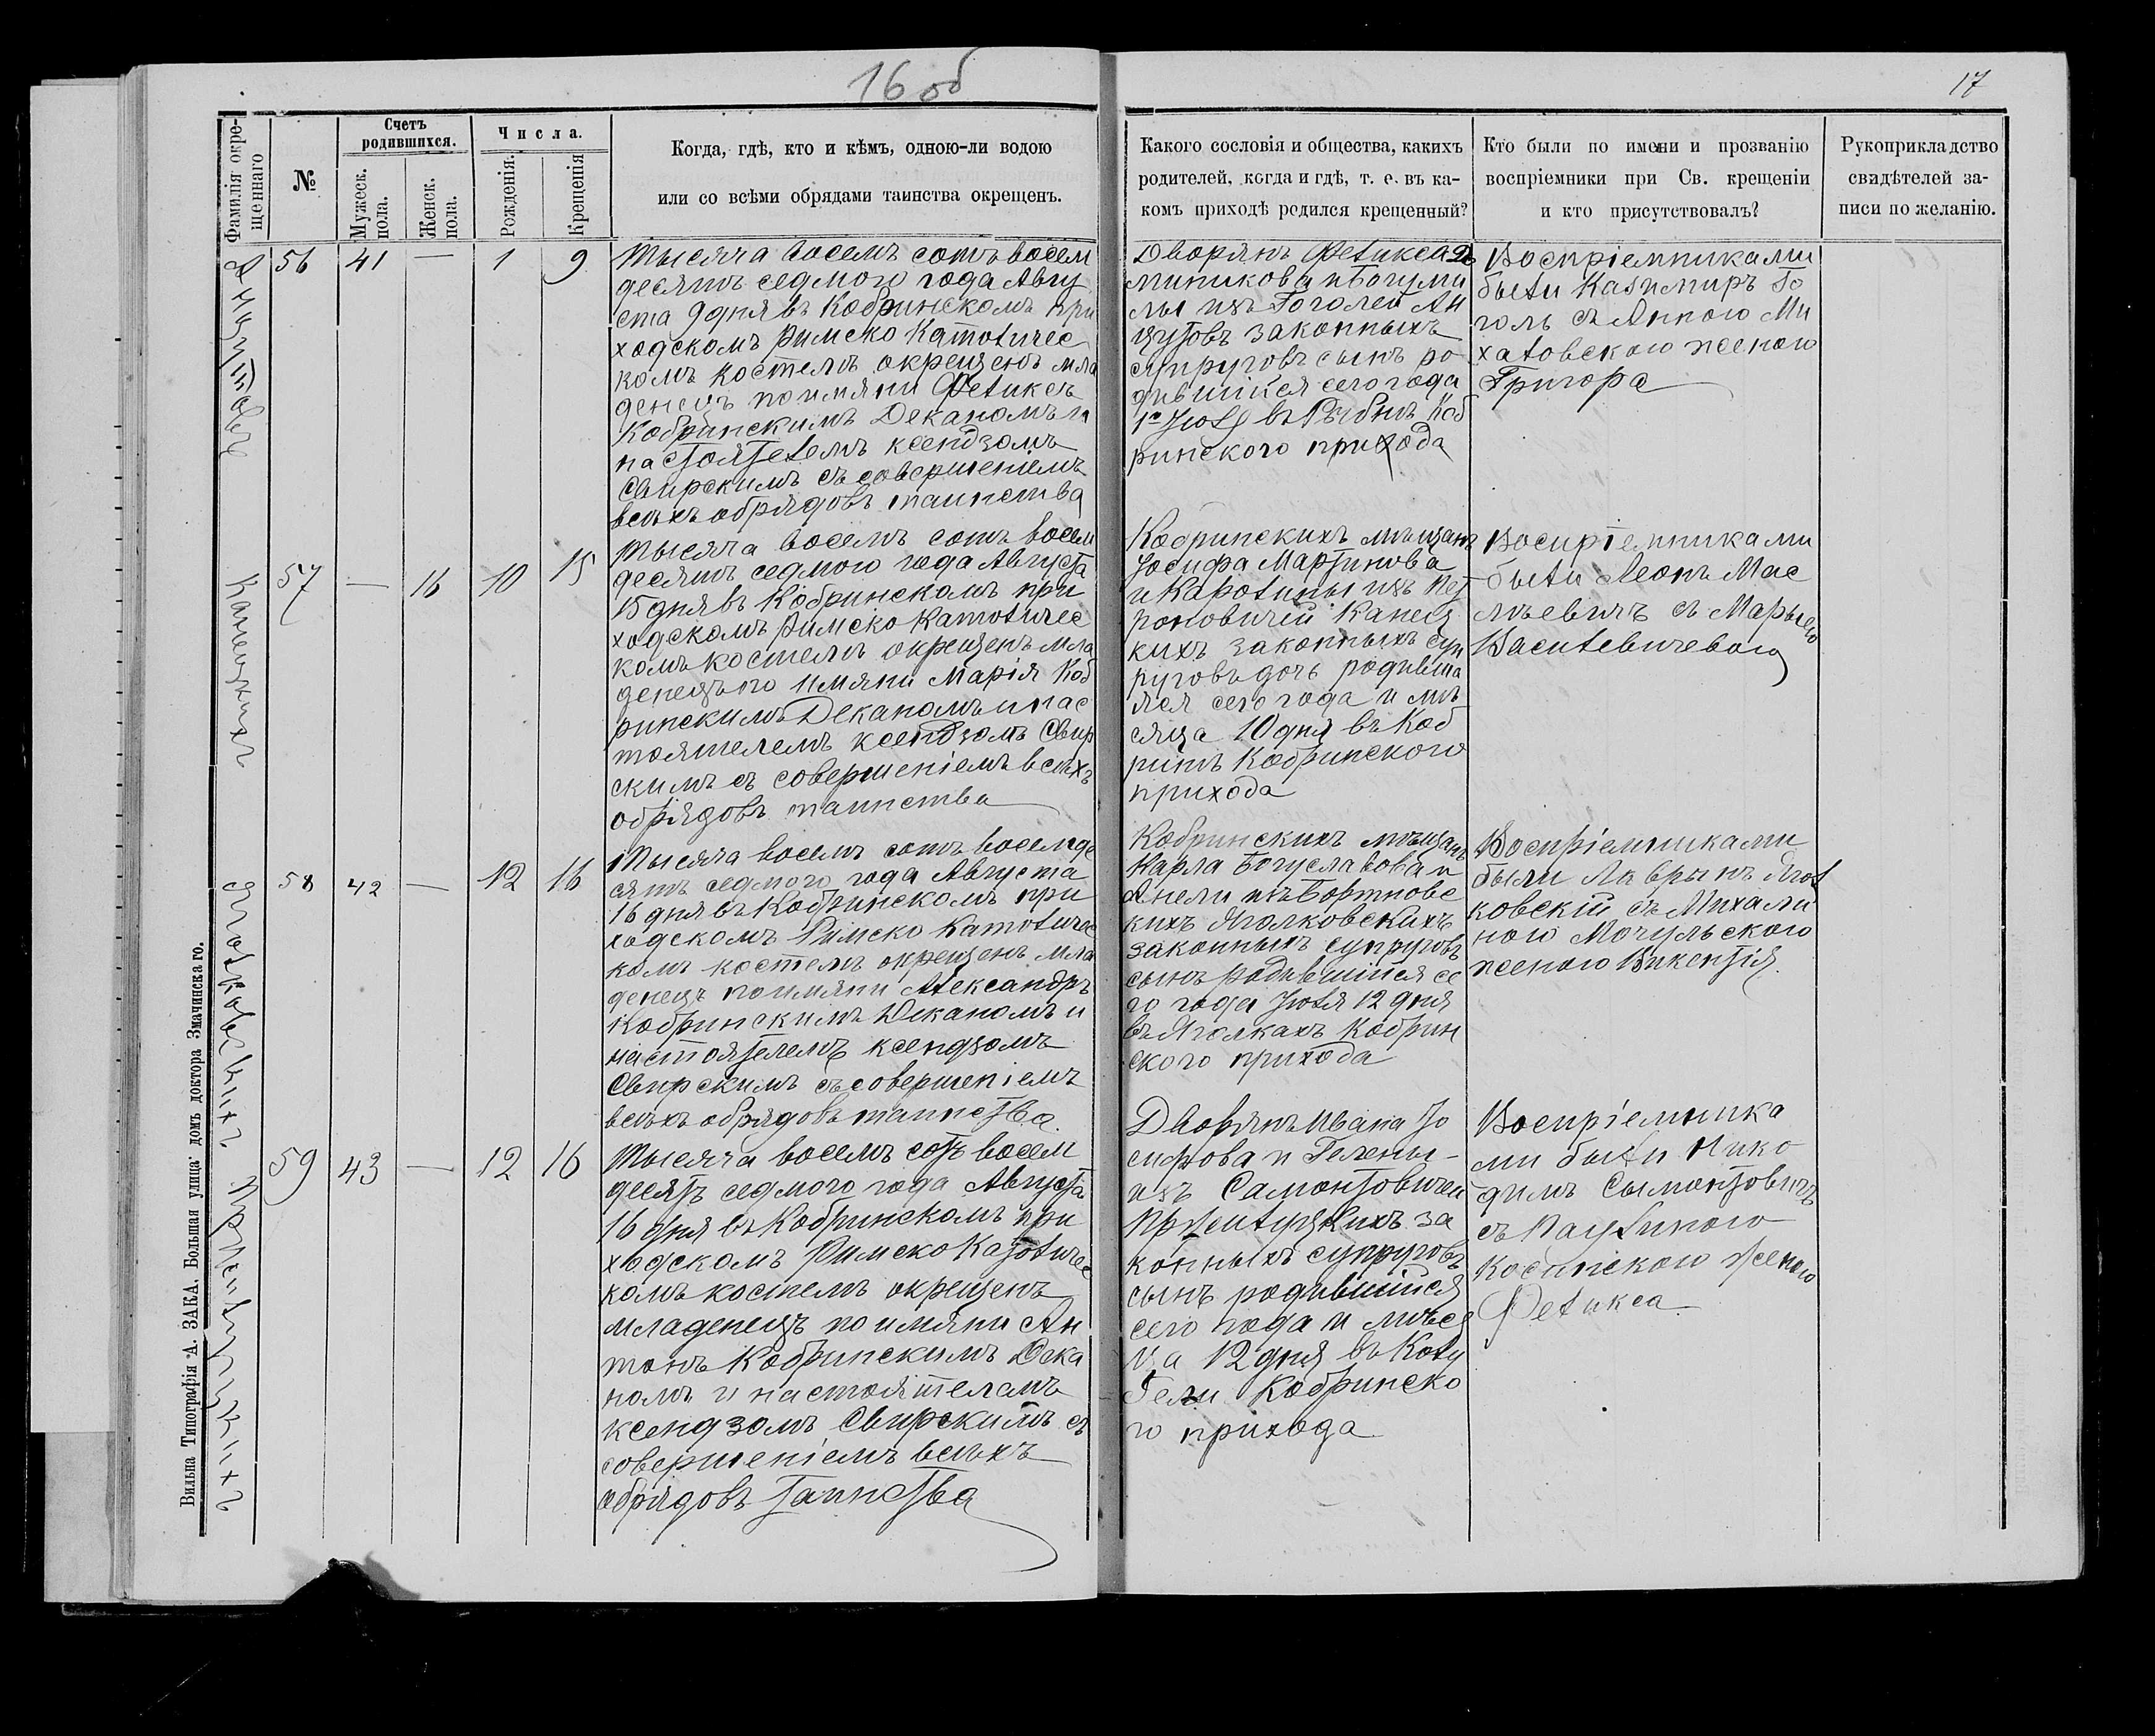 16 об
17
Фамилія окре-
щеннаго
№
Счетъ
родившихся.
Мужеск.
пола.
Женск.
пола.
Числа.
Рожденія.
Крещенія
Когда, гдѣ, кто и кѣмъ, одною-ли водою
или со всѣми обрядами таинства окрещенъ.
Какого сословія и общества, какихъ
родителей, когда и гдѣ, т. е. въ ка-
комъ приходѣ родился крещенный?
Кто были по имени и прозванію
воспріемники при Св. крещеніи
и кто присутствовалъ?
Рукоприкладство
свидѣтелей за-
писи по желанію.
56
41
—
1
9
Тысяча восемъ сотъ восем
десятъ седмого года Авгу
ста 9 дня въ Кобринскомъ при
ходскомъ Римско Католичес
комъ костелѣ окрещенъ мла
денецъ по имяни Феликсъ
Кобринскимъ Деканомъ и
настоятелемъ ксендзомъ
Свирскимъ съ совершеніемъ
всѣхъ обрядовъ таинства
Дворянъ Феликса До
миникова и Богуми
лы изъ Гоголей Ан
цутовъ законныхъ
супруговъ сынъ ро
дившійся сего года
1го Іюля въ Рыбнѣ Коб
ринского прихода
Воспріемниками
были Казимиръ Го
голь съ Анною Ми
халовскою женою
Григора
Канецкихъ
57
—
16
10
15
Тысяча восемъ сотъ восем
десятъ седмого года Августа
15 дня въ Кобринскомъ при
ходскомъ Римско Католичес
комъ костелѣ окрещенъ мла
денецъ по имяни Марія Коб
ринскимъ Деканомъ и нас
тоятелемъ ксендзомъ Свир
скимъ съ совершеніемъ всѣхъ
обрядовъ таинства
Кобринскихъ мѣщанъ
Іосифа Мартинова
и Каролины изъ Пет
роновичей Канец
кихъ законныхъ суп
руговъ дочь родивша
яся сего года и мѣ
сяца 10 дня въ Коб
ринѣ Кобринского
прихода
Воспріемниками
были Леонъ Мас
лѣевичъ съ Марьею
Василевичевою
Яголковскихъ
58
42
—
12
16
Тысяча восемъ сотъ восемде
сятъ седмого года Августа
16 дня въ Кобринскомъ при
ходскомъ Римско Католичес
комъ костелѣ окрещенъ мла
денецъ по имяни Александръ
Кобринскимъ Деканомъ и
настоятелемъ ксендзомъ
Свирскимъ съ совершеніемъ
всѣхъ обрядовъ таинства.
Кобринскихъ мѣщанъ
Карла Богуславова и
Анели изъ Бортновс
кихъ Яголковскихъ
законныхъ супруговъ
сынъ родившійся се
го года Іюля 12 дня
въ Яголкахъ Кобрин
ского прихода
Воспріемниками
были Лаврынъ Ягол
ковскій съ Михали
ною Мочульскою
женою Викентія.
59
43
—
12
16
Тысяча восемъ сотъ восем
десятъ седмого года Августа
16 дня въ Кобринскомъ при
ходскомъ Римско Католичес
комъ костелѣ окрещенъ
младенецъ по имяни Ан
тонъ Кобринскимъ Дека
номъ и настоятелемъ
ксендзомъ Свирскимъ съ
совершеніемъ всѣхъ
обрядовъ таинства
Дворянъ Ивана Іо
сифова и Гелены –
изъ Самонтовичей
законныхъ супруговъ
сынъ родившійся
сего года и мѣся
ца 12 дня въ
Кобринско
го прихода
Воспріемника
ми были Нико
димъ Сымонтовичъ
съ Паулиною
женою
Феликса
Вильна Типографія А. ЗАКА. Большая улица домъ доктора Змачинскаго.